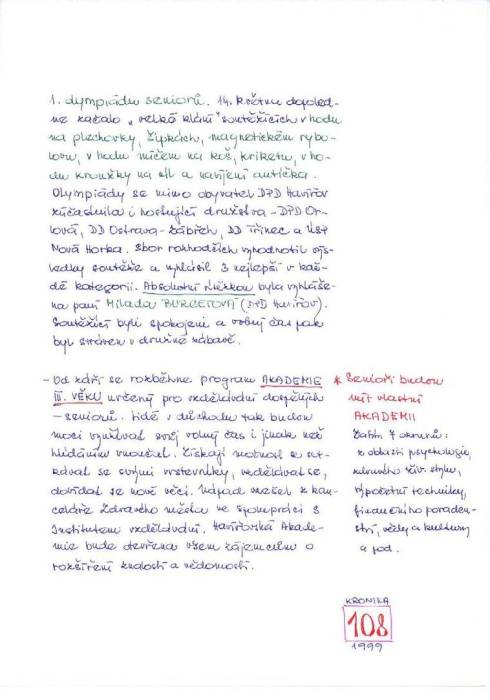 1. olympiádu seniorů. 14. května dopoled-
ne začalo „velké klání" soutěžících v hodu
na plechovky, šipkách, magnetickém rybo-
lovu, v hodu míčem na koš, kriketu, v ho-
du kroužky na cíl a navíjení autíčka.
Olympiády se mimo obyvatel DPD Havířov
zúčastnila i hostující družstva - DPD Or-
lová, DD Ostrava - Zábřeh, DD Třinec a ÚSP
Nová Horka. Sbor rozhodčích vyhodnotil výs-
ledky soutěže a vyhlásil 3 nejlepší v kaž-
dé kategorii. Absolutní vítězkou byla vyhláše-
na paní Milada BURGETOVÁ (DPD Havířov).
Soutěžící byli spokojeni a volný čas pak
byl stráven v družné zábavě.
- Od září se rozběhne program AKADEMIE
III. VĚKU určený pro vzdělávání dospělých
- seniorů. Lidé v důchodu tak budou
moci využívat svůj volný čas i jinak než
hlídáním vnoučat. Získají možnost se set-
kávat se svými vrstevníky, vzdělávat se,
dovídat se nové věci. Nápad vzešel z kan-
celáře Zdravého města ve spolupráci s
Institutem vzdělávání. Havířovská Akade-
mie bude otevřena všem zájemcům o
rozšíření znalostí a vědomostí.
* Senioři budou
mít vlastní
AKADEMII
Zatím 7 okruhů:
z oblasti psychologie,
zdravého živ. stylu,
výpočetní techniky,
finančního poraden-
ství, vědy a kultury
a pod.
KRONIKA
108
1999